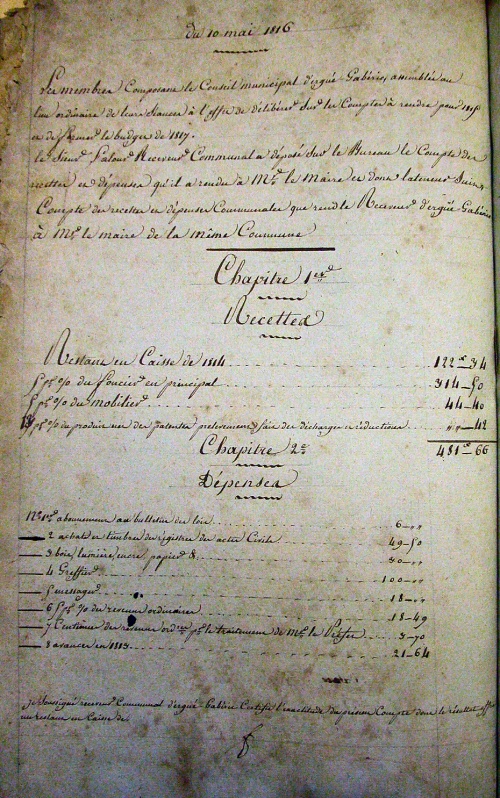 du 10 mai 1816
Les membres Composant le Conseil municipal d'ergué-Gabéric, assemblée au
lieu ordinaire de leurs séances à l'effet de délibérer sur les Comptes à rendre pour 1815
et de former le budget de 1817.
le Sieur Salou Receveur Communal a déposé sur le Bureau le Compte des
recettes et dépenses qu'il a rendu à Mr le Maire et dont la teneur suit,
Compte de recettes et dépenses Communales que rend le Receveur d'ergué-Gabéric
à Mr le maire de la même Commune
Chapitre 1er
Recettes
Restait en Caisse de 1814 122 — 34
5 pr % du foncier en principal 314 — 50
5 pr % du mobilier 44 — 40
pr % du produit net des patentes prélevement fait des décharges et réductions " — 42
481 — 66
Chapitre 2e
Dépenses
No 1er abonnement au bulletin des lois 6 — "
2 achat et timbre du registre des actes Civils 49 — 50
3 bois, lumière, encre, papier &. 30 — "
4 Greffier 100 — "
5 messager 18 — "
6 5 pr % du revenu ordinaire 18 — 49
7 Centimes du revenu ordre pr le traitement de Mr le Préfet 3 — 70
8 avances en 1813 21 — 64
Je Soussigné receveur Communal d'ergué-Gabéric Certifie l'exactitude du présent Compte dont le résultat offre
un restant en Caisse de